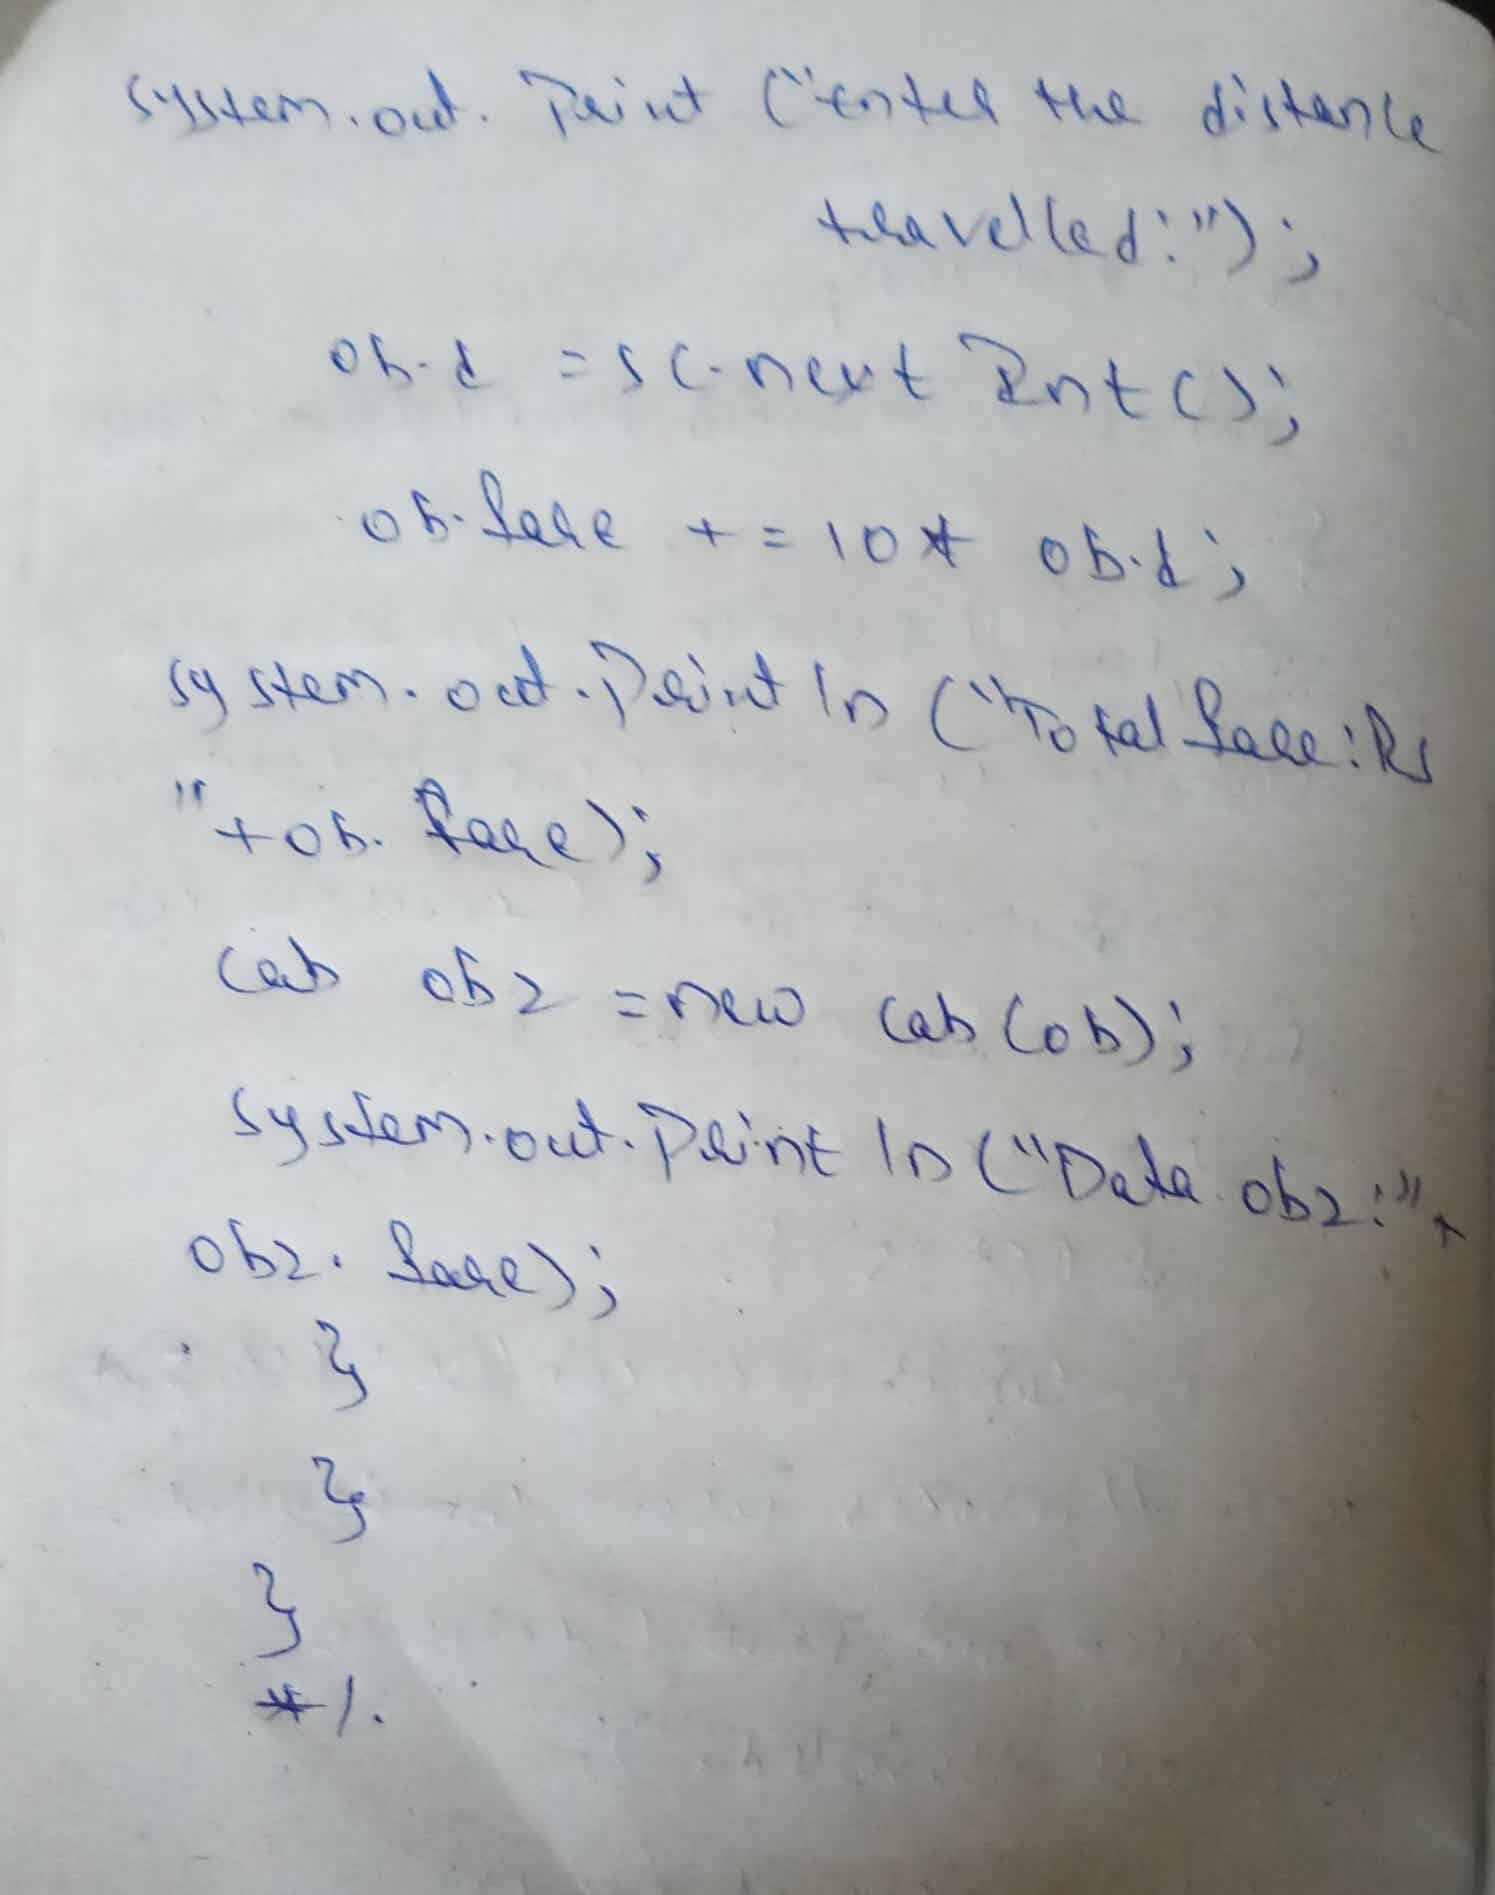 system.out.Print ("enter the distance
travelled:");
ob.d =sc.next Int();
ob.fare += 10* ob.d;
system.out.Print ln ("Total fare:Rs
"+ob.fare);
cab ob2 =new cab(ob);
system.out.Print ln ("Data ob2:"+
ob2.fare);
}
}
}
*/.